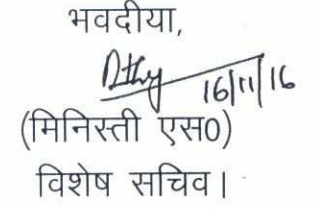 भवदीया,
16/11/16
(मिनिस्ती एस0)
विशेष सचिव।